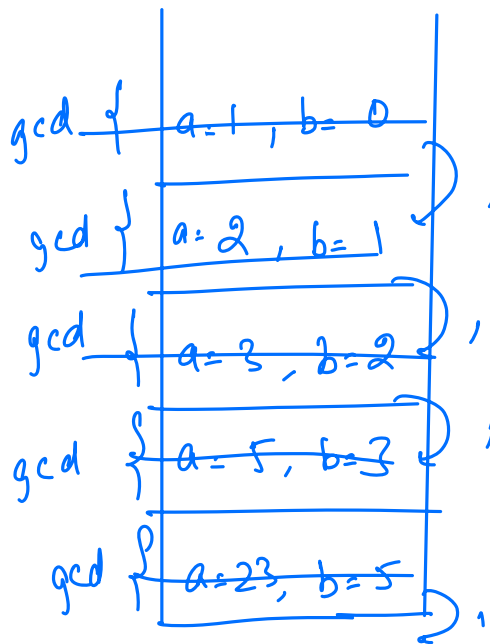 gcd { a=1, b=0
gcd } a=2, b=1
gcd { a=3, b=2
gcd { a=5, b=3
gcd { a=23, b=5